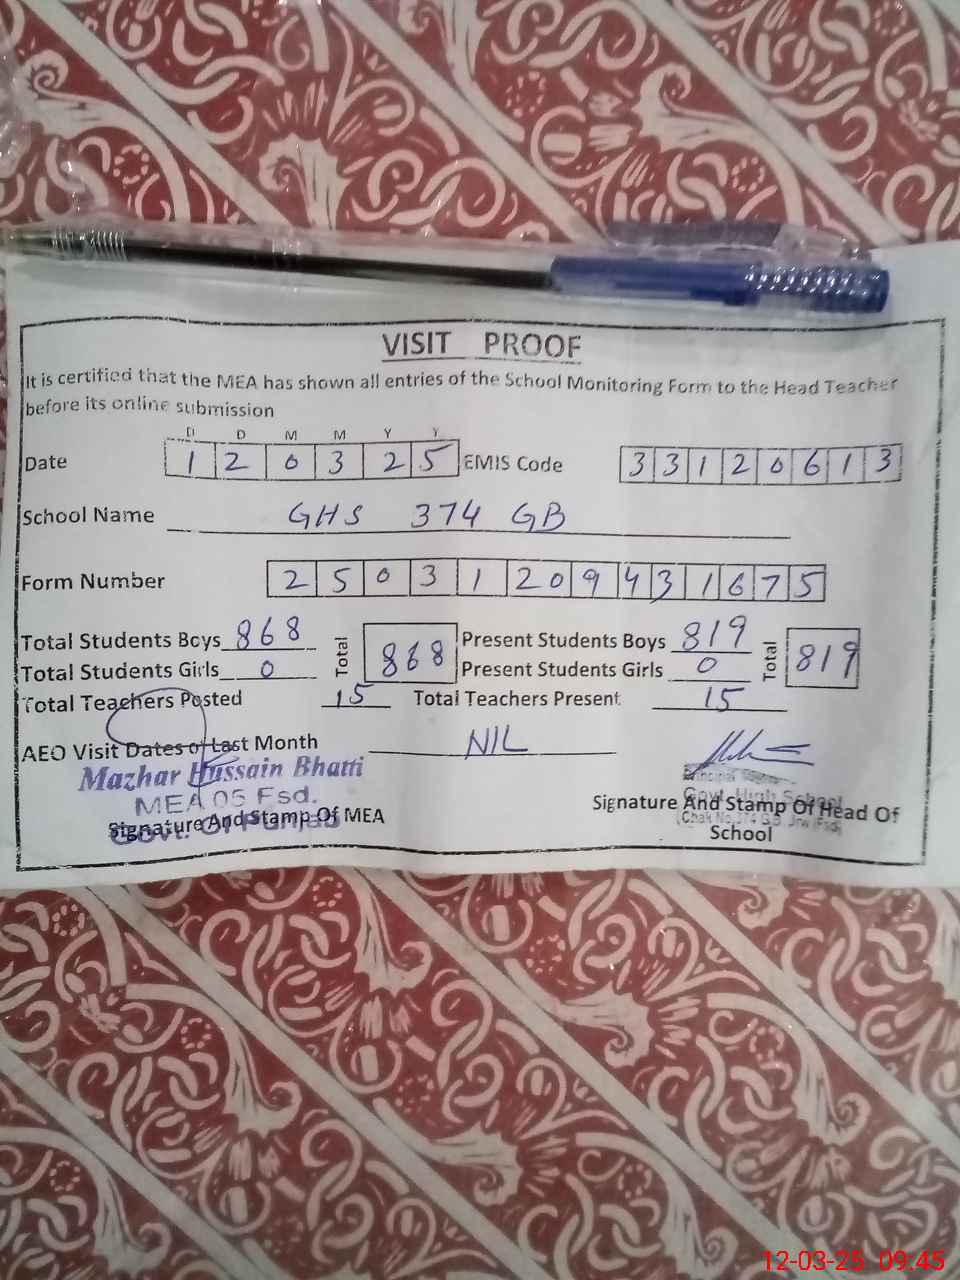 VISIT PROOF
It is certified that the MEA has shown all entries of the School Monitoring Form to the Head Teacher
before its online submission
D D M M Y Y
Date 1 2 0 3 2 5 EMIS Code 3 3 1 2 0 6 1 3
School Name GHS 374 GB
Form Number 2 5 0 3 1 2 0 9 4 3 1 6 7 5
Total Students Boys 868 Total 868 Present Students Boys 819 Total 819
Total Students Girls 0 Present Students Girls 0
Total Teachers Posted 15 Total Teachers Present 15
AEO Visit Dates of Last Month NIL
Mazhar Hussain Bhatti
MEA 05 Fsd.
Govt. Of Punjab
Signature And Stamp Of MEA
Principal
Govt. High School
Chak No. 374 G.B. Jrw (Fsd)
Signature And Stamp Of Head Of
School
12-03-25 09:45